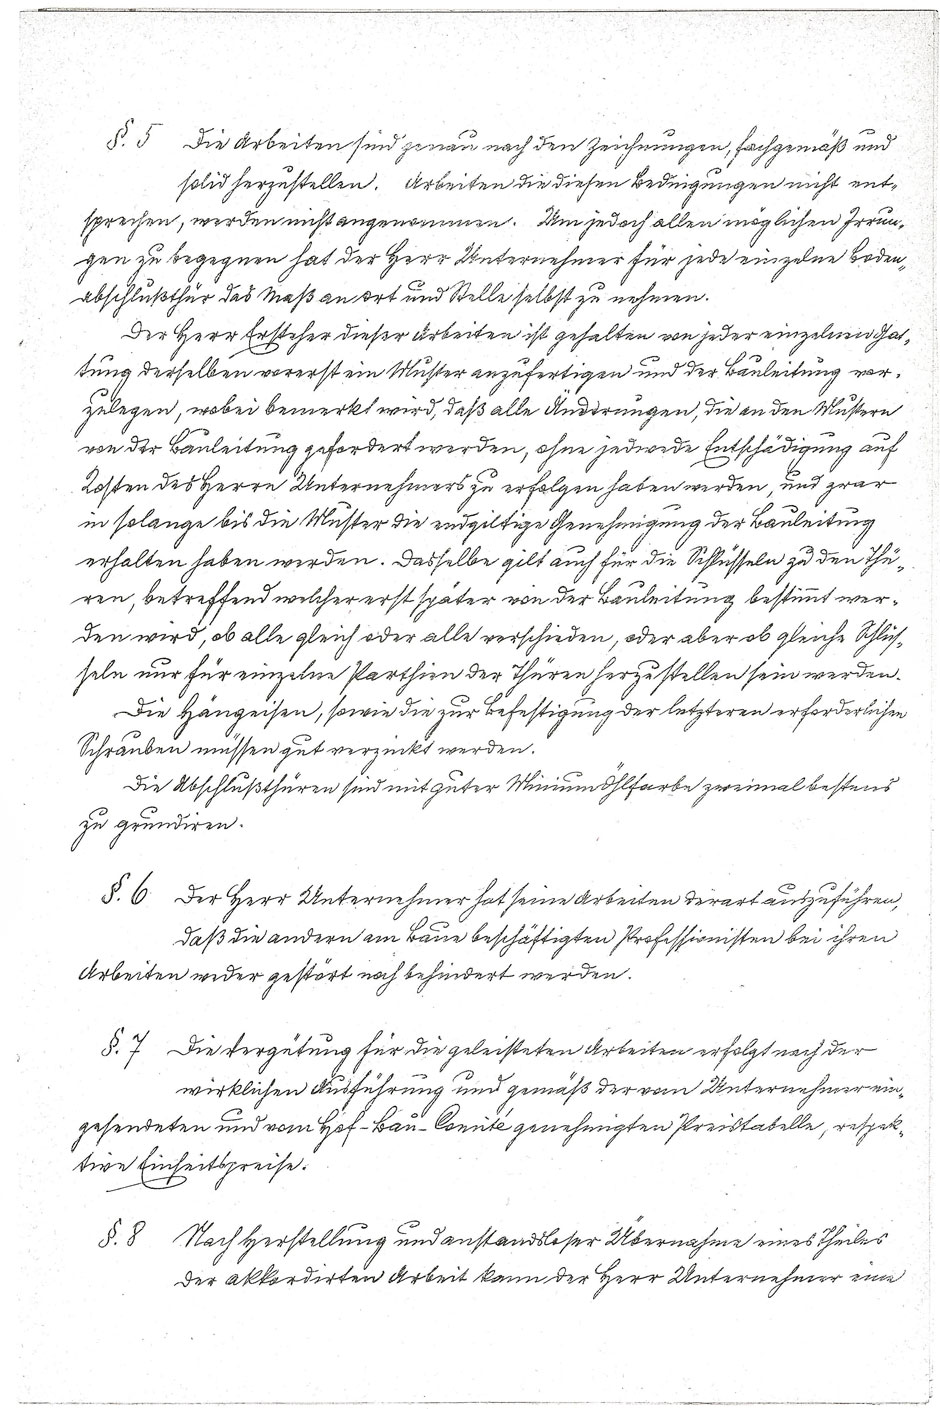 §. 5 Die Arbeiten sind genau nach den Zeichnungen, fachgemäß und
solid herzustellen. Arbeiten die diesen Bedingungen nicht ent-
sprechen, werden nicht angenommen. Um jedoch allen möglichen Irrun-
gen zu begegnen hat der Herr Unternehmer für jede einzelne Boden-
abschlußthür das Maß an Ort und Stelle selbst zu nehmen.
Der Herr Ersteher dieser Arbeiten ist gehalten von jeder einzelnen Gat-
tung derselben vorerst ein Muster anzufertigen und der Bauleitung vor-
zulegen, wobei bemerkt wird, daß alle Änderungen, die an den Mustern
von der Bauleitung gefordert werden, ohne jedwede Entschädigung auf
Kosten des Herrn Unternehmers zu erfolgen haben werden, und zwar
in solange bis die Muster die endgiltige Genehmigung der Bauleitung
erhalten haben werden. Dasselbe gilt auch für die Schlüsseln zu den Thü-
ren, betreffend welcher erst später von der Bauleitung bestimmt wer-
den wird, ob alle gleich oder alle verschieden, oder aber ob gleiche Schlüs-
seln nur für einzelne Parthien der Thüren herzustellen sein werden.
Die Hängeisen, sowie die zur Befestigung der letzteren erforderlichen
Schrauben müssen gut verzinkt werden.
Die Abschlußthüren sind mit guter Miniumöhlfarbe zweimal bestens
zu grundiren.
§. 6 Der Herr Unternehmer hat seine Arbeiten derart auszuführen,
daß die andern am Baue beschäftigten Professionisten bei ihren
Arbeiten weder gestört noch behindert werden.
§. 7 Die Vergütung für die geleisteten Arbeiten erfolgt nach der
wirklichen Ausführung und gemäß der vom Unternehmer ein-
gesendeten und vom Hof-Bau-Comité genehmigten Preistabelle, respek-
tive Einheitspreise.
§. 8 Nach Herstellung und anstandsloser Übernahme eines Theiles
der akkordirten Arbeit kann der Herr Unternehmer eine